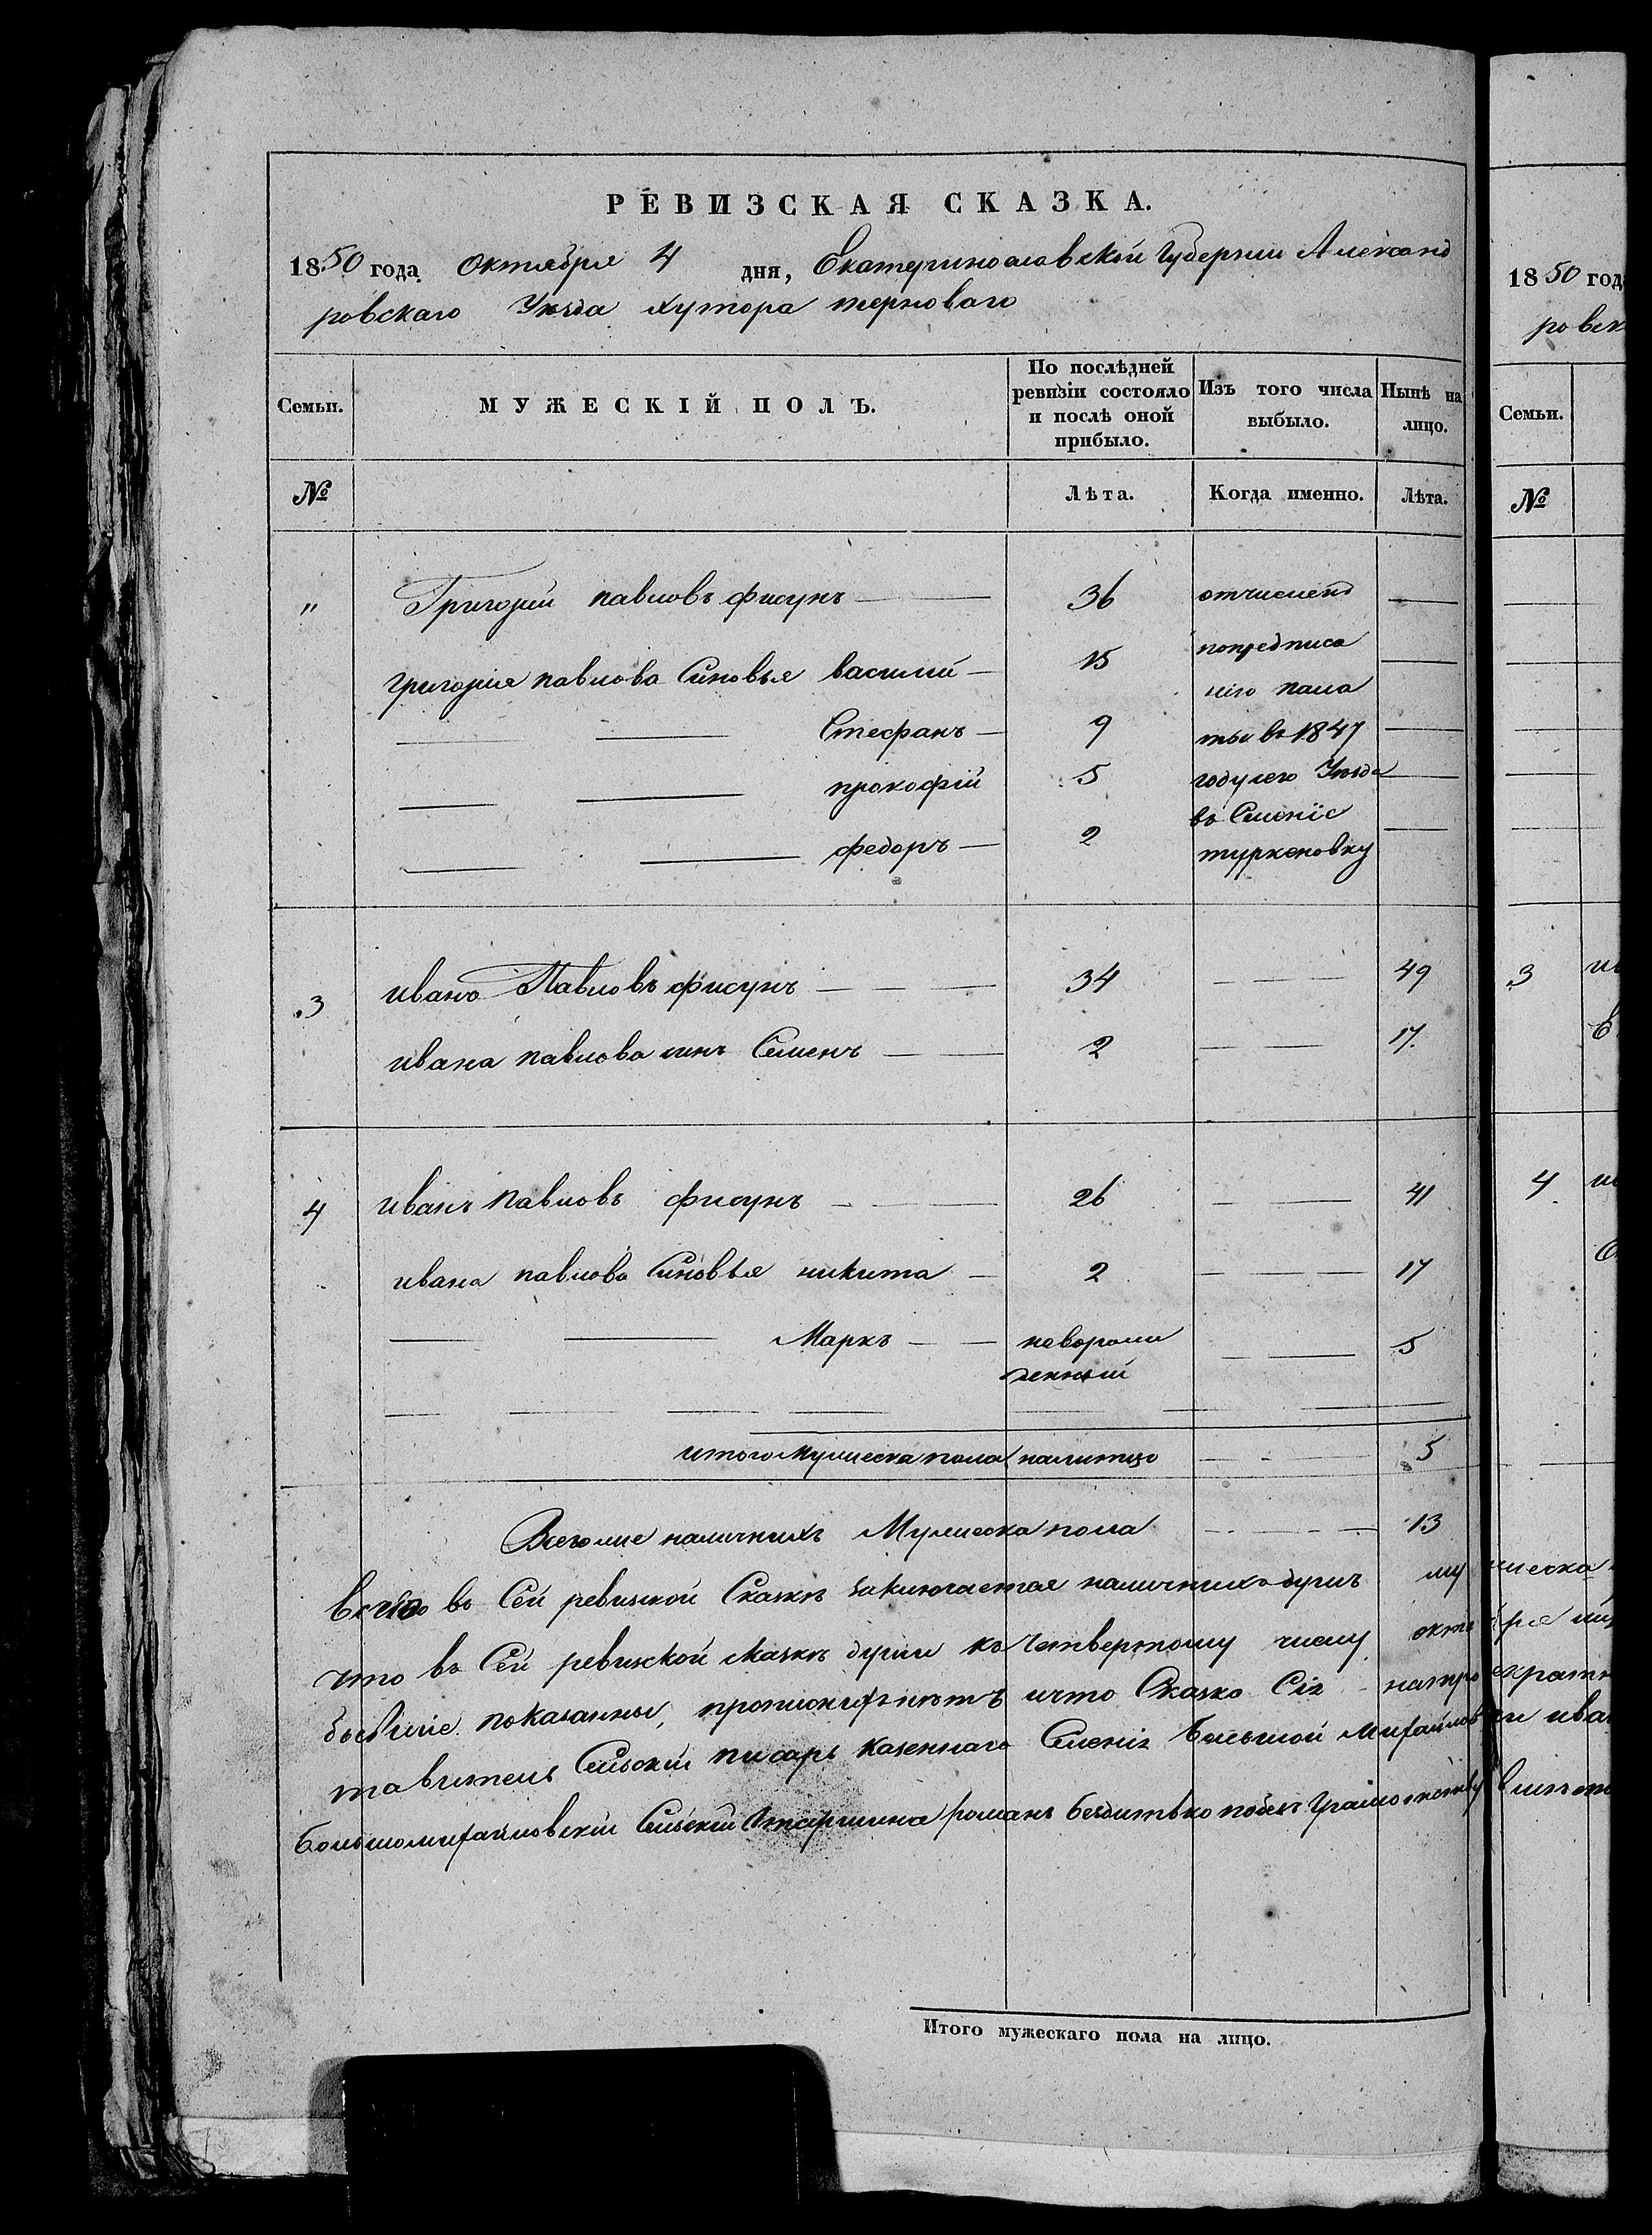 РЕВИЗСКАЯ СКАЗКА.
1850 года Октября 4 дня, Екатеринославской Губернии Александ
ровскаго Уезда хутора терноваго
Семьи. МУЖЕСКІЙ ПОЛЪ. По послѣдней ревизіи состояло и послѣ оной прибыло. Изъ того числа выбыло. Нынѣ на лицо.
№ Лѣта. Когда именно. Лѣта.
" Григорий павловъ фисунъ 36 отчисленъ
григория павлова Синовья василий 15 попредписа
нію пала
Стефанъ 9 ты въ 1847
прокофій 5 году сего Уезда
въ Селеніе
федоръ 2 туркеновку
3 иванъ Павловъ фисунъ 34 49
ивана павлова синъ Семенъ 2 17.
4 иванъ павловъ фисунъ 26 41
ивана павлова Синовья никита 2 17
Маркъ новорож 5
денный
итого мужеска пола налитцо 5
Всегоже наличнихъ Мужеска пола 13
всего въ Сей ревизкой Сказкѣ заключается наличнихъ душъ му
что въ Сей ревизкой сказкѣ души къ Четвертому числу октя
бывшіе показанны, ичто Сказка Сія
тавитель Сельскій писарь казеннаго Селенія большой Михайлов
большомихайловскій Сельскій Старшина романъ
Итого мужескаго пола на лицо.
1850 год
ровск
Семьи.
№
3
4